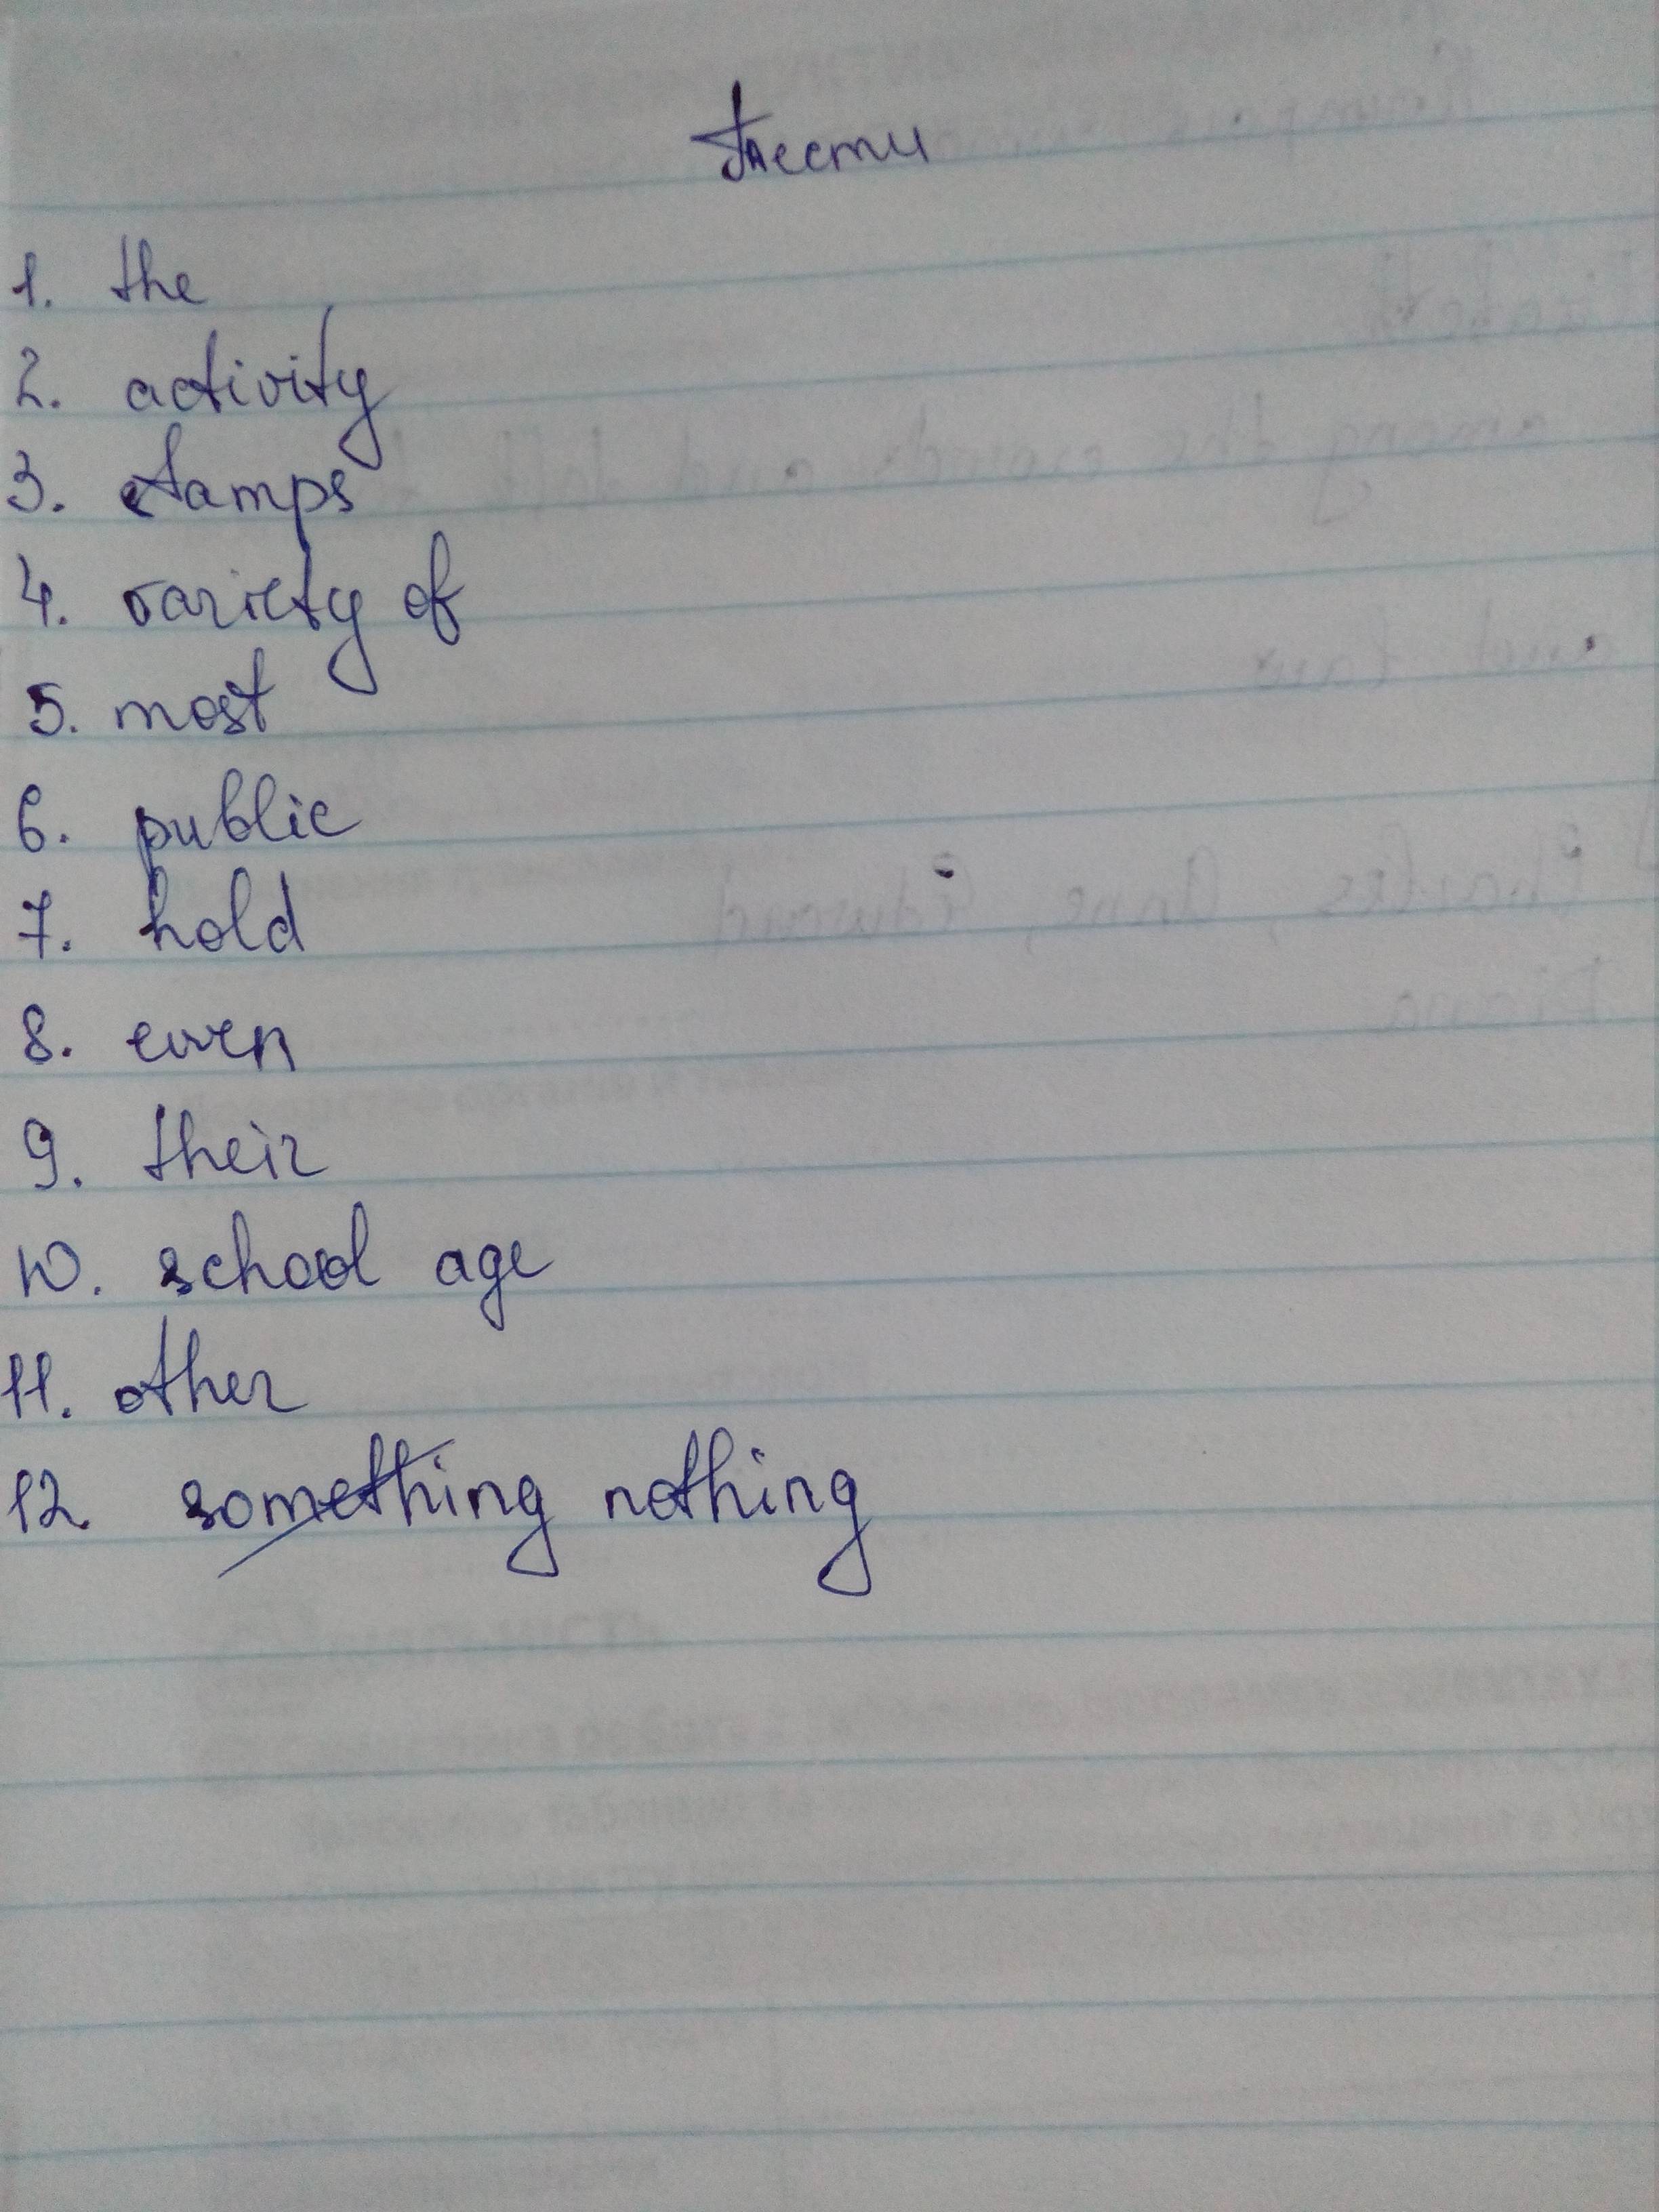 Тести
1. the
2. activity
3. stamps
4. variety of
5. most
6. public
7. hold
8. even
9. their
10. school age
11. other
12. something nothing